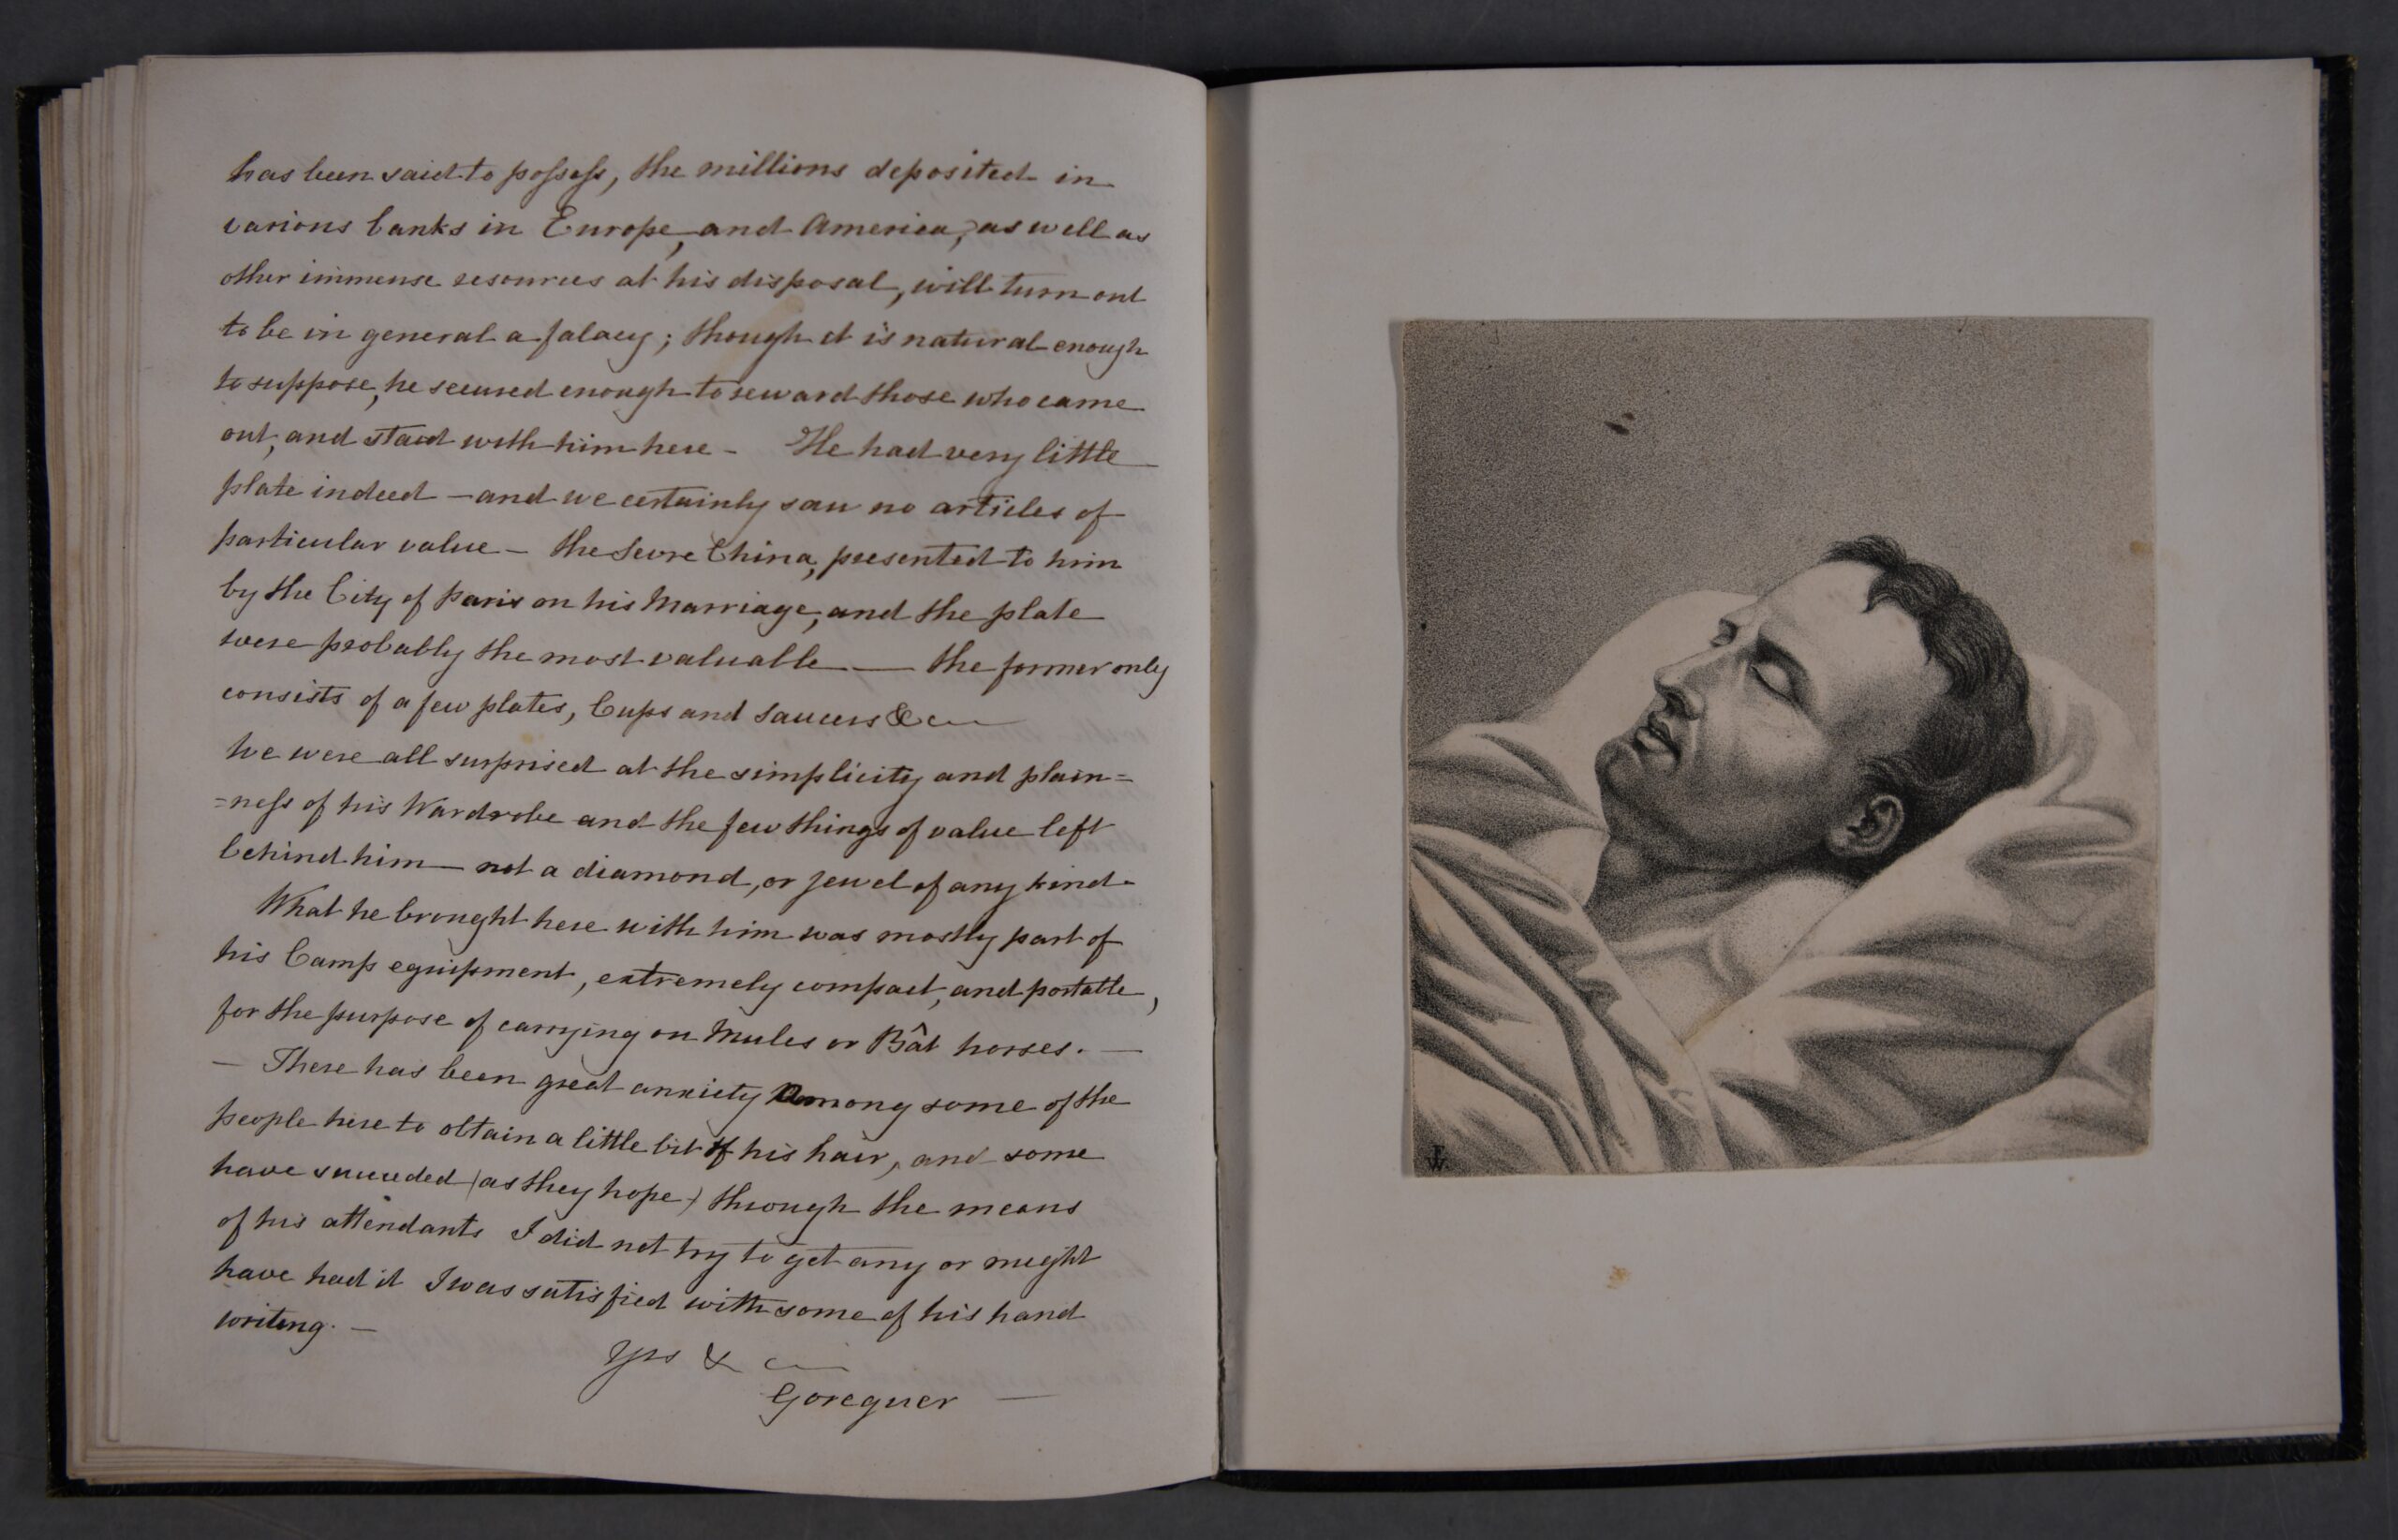 has been said to possess, the millions deposited in
various banks in Europe, and America, as well as
other immense resources at his disposal, will turn out
to be in general a falacy; though it is natural enough
to suppose, he secured enough to reward those who came
out, and staid with him here - He had very little
plate indeed - and we certainly saw no articles of
particular value - the Sevre China, presented to him
by the City of Paris on his Marriage, and the plate
were probably the most valuable — the former only
consists of a few plates, Cups and Saucers &c
We were all surprised at the simplicity and plain=
=ness of his Wardrobe and the few things of value left
behind him - not a diamond, or jewel of any kind -
What he brought here with him was mostly part of
his Camp equipment, extremely compact, and portable,
for the purpose of carrying on Mules or Bât horses. —
- There has been great anxiety Among some of the
people here to obtain a little bit of his hair, and some
have succeeded (as they hope) through the means
of his attendants I did not try to get any or might
have had it I was satisfied with some of his hand
writing. -
Yrs & c
Gorequer —